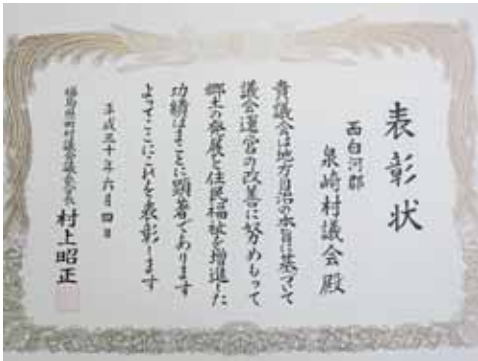 表彰状
西白河郡
泉崎村議会殿
貴議会は地方自治の本旨に基づいて
議会運営の改善に努めもって
郷土の発展と住民福祉を増進した
功績はまことに顕著であります
よってここにこれを表彰します
平成三十年六月四日
福島県町村議会議長会長 村上昭正